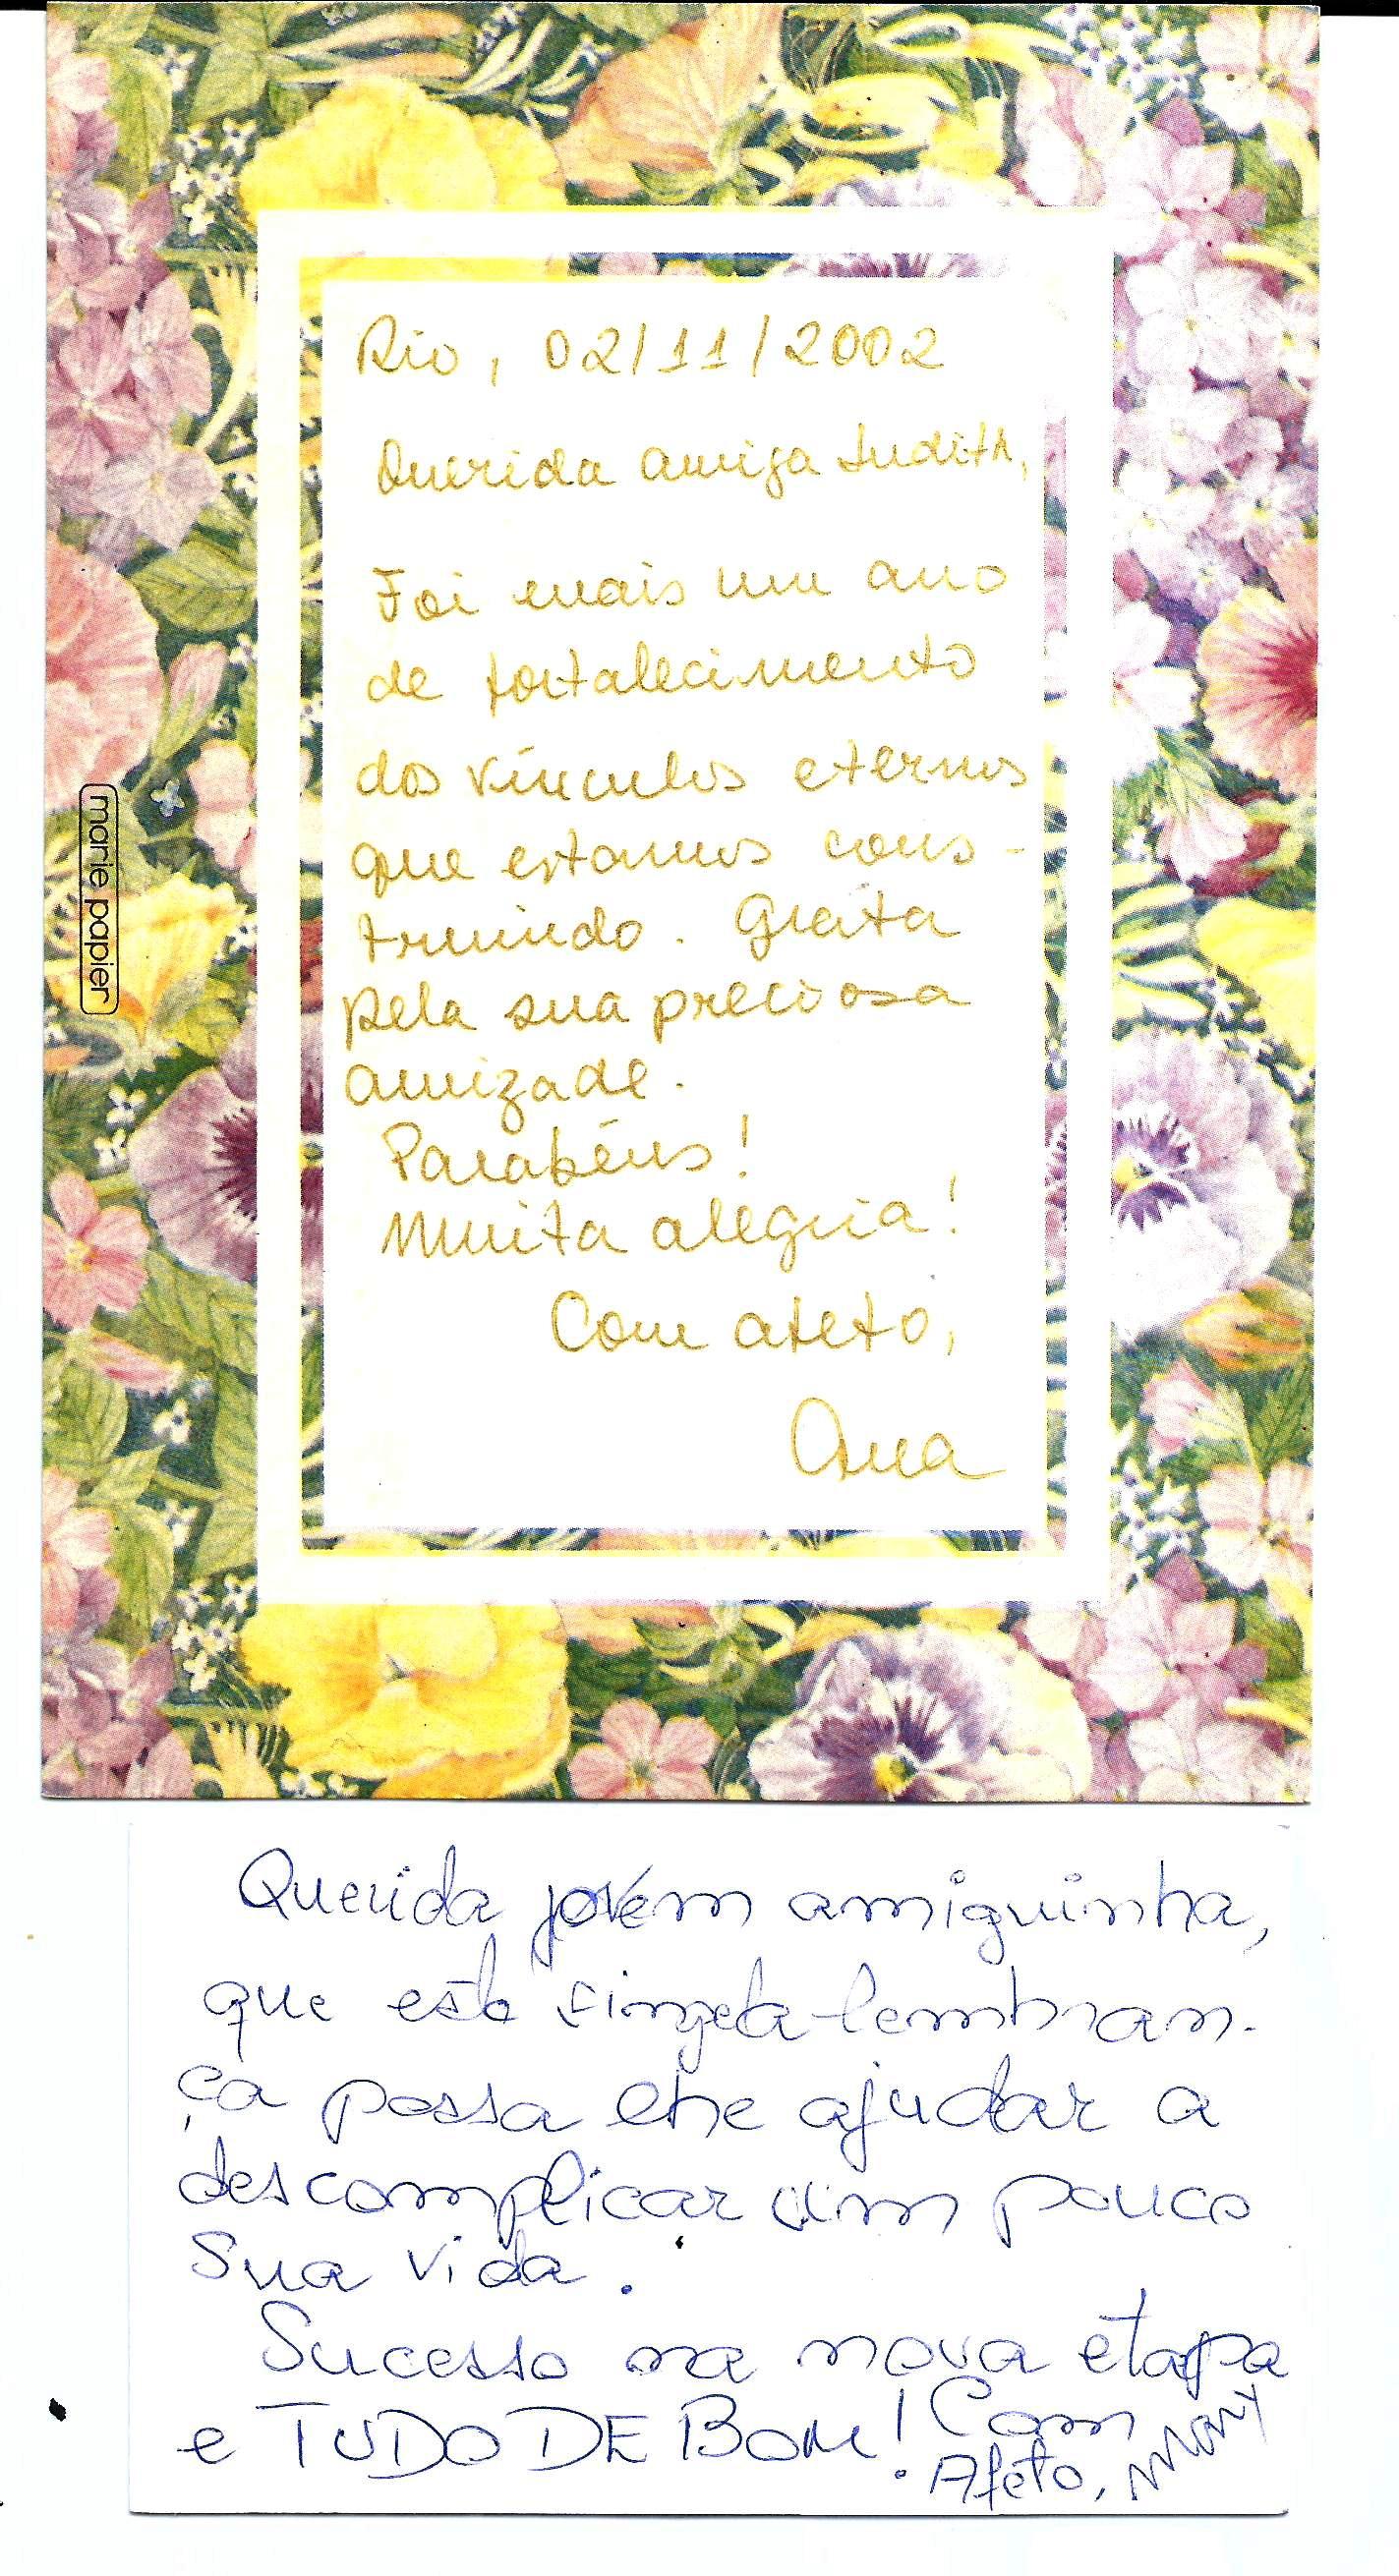 Rio, 02/11/2002
Querida amiga Judith,
Foi mais um ano
de fortalecimento
dos vínculos eternos
que estamos cons-
truindo. Grata
pela sua preciosa
amizade.
Parabéns!
Muita alegria!
Com afeto,
Ana
marie papier
Querida jovem amiguinha,
que esta singela lembran-
ça possa lhe ajudar a
descomplicar um pouco
Sua vida.
Sucesso na nova etapa
e TUDO DE BOM! Com
Afeto, Mary